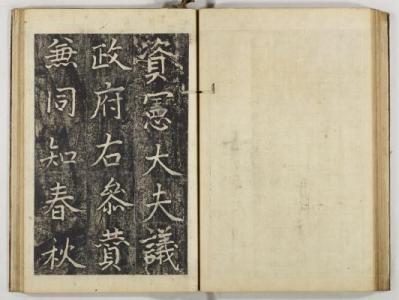 資憲大夫議
政府右叅賛
兼同知春秋